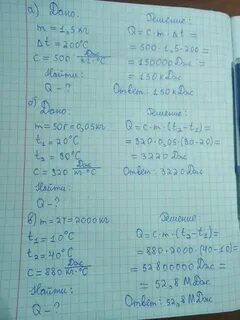 а) Дано: Решение:
m = 1,5 кг Q = c · m · Δt =
Δt = 200°C = 500 · 1,5 · 200 =
c = 500 Дж/кг·°C = 150000 Дж =
Найти: = 150 кДж
Q - ? Ответ: 150 кДж
б) Дано: Решение:
m = 50г = 0,05кг Q = c · m · (t₂ - t₁) =
t₁ = 20°C = 920 · 0,05 · (90 - 20) =
t₂ = 90°C = 3220 Дж
c = 920 Дж/кг·°C Ответ: 3220 Дж
Найти:
Q - ?
в) Дано: Решение
m = 2т = 2000 кг Q = c · m · (t₂ - t₁) =
t₁ = 10°C = 880 · 2000 · (40 - 10) =
t₂ = 40°C = 52800000 Дж =
c = 880 Дж/кг·°C = 52,8 МДж
Найти: Ответ: 52,8 МДж
Q - ?